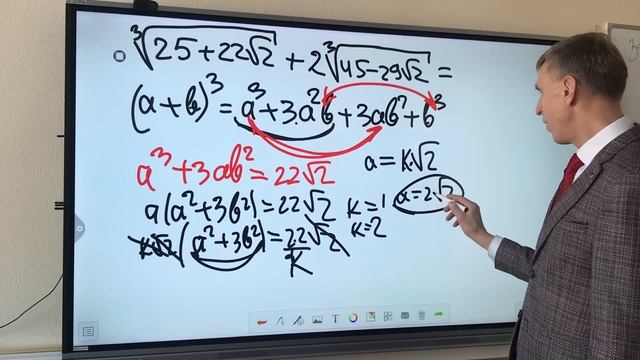 ∛25+22√2 + 2∛45-29√2 =
(a+b)³ = a³+3·a²b+3ab²+b³
a³+3ab²=22√2
a=k√2
a(a²+3b²)=22√2
k=1
a=2√2
k√2(a²+3b²)=22√2/k
k=2
T